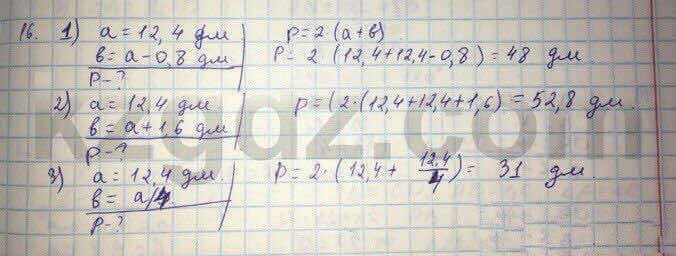 16. 1) a = 12,4 дм P = 2 (a + b)
b = a - 0,8 дм P = 2 (12,4 + 12,4 - 0,8) = 48 дм
P - ?
2) a = 12,4 дм P = (2 · (12,4 + 12,4 + 1,6) = 52,8 дм.
b = a + 1,6 дм
P - ?
3) a = 12,4 дм. P = 2 · (12,4 + 12,4/4) = 31 дм.
b = a/4
P - ?